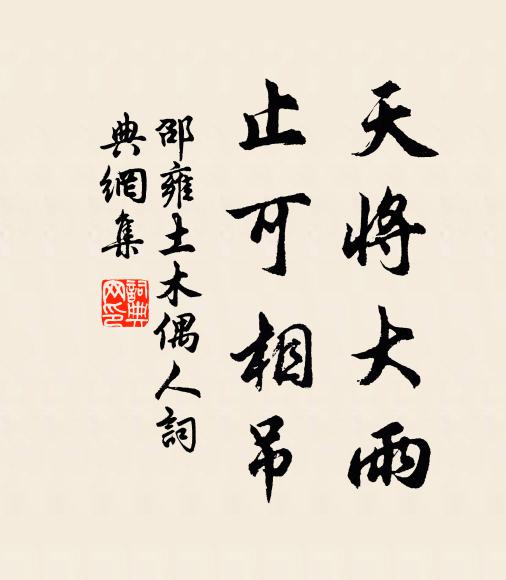 天將大雨
止可相吊
邵雍土木偶人詞
典網集
詞典網印